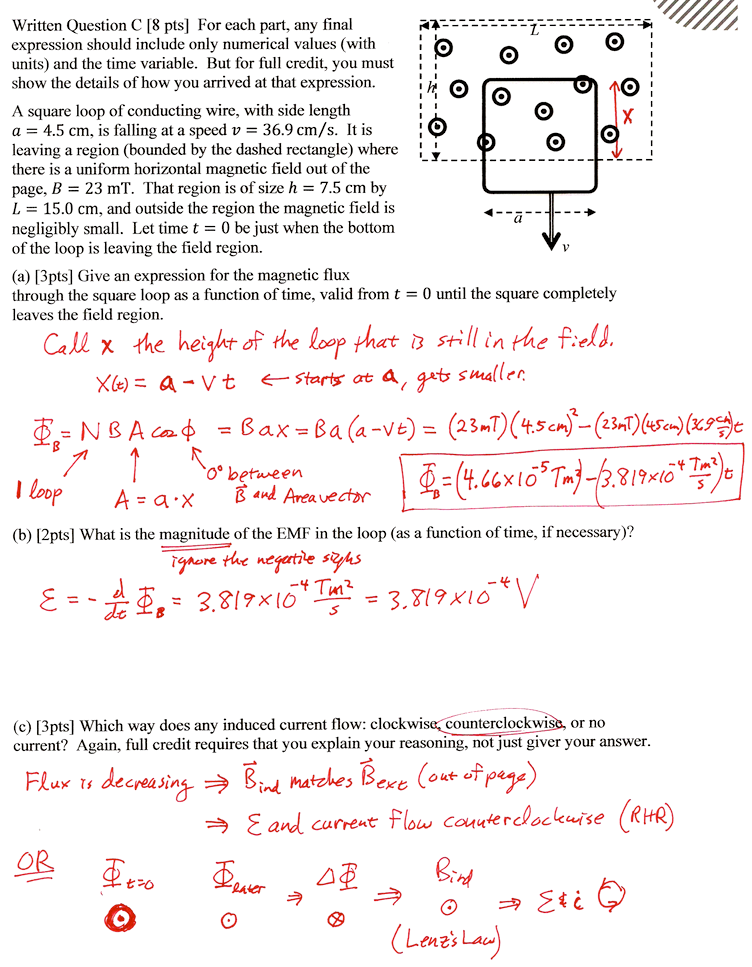 Written Question C [8 pts]  For each part, any final
expression should include only numerical values (with
units) and the time variable.  But for full credit, you must
show the details of how you arrived at that expression.
A square loop of conducting wire, with side length
a = 4.5 cm, is falling at a speed v = 36.9 cm/s.  It is
leaving a region (bounded by the dashed rectangle) where
there is a uniform horizontal magnetic field out of the
page, B = 23 mT.  That region is of size h = 7.5 cm by
L = 15.0 cm, and outside the region the magnetic field is
negligibly small.  Let time t = 0 be just when the bottom
of the loop is leaving the field region.
L
h
x
a
v
(a) [3pts] Give an expression for the magnetic flux
through the square loop as a function of time, valid from t = 0 until the square completely
leaves the field region.
Call x the height of the loop that is still in the field.
X(t) = a - vt ← starts at a, gets smaller.
Φ_B = N B A cos ϕ = Bax = Ba(a-vt) = (23mT)(4.5cm)² - (23mT)(4.5cm)(36.9 cm/s)t
1 loop
A = a·x
0° between
B⃗ and Area vector
Φ_B = (4.66×10⁻⁵ Tm²) - (3.819×10⁻⁴ Tm²/s)t
(b) [2pts] What is the magnitude of the EMF in the loop (as a function of time, if necessary)?
ignore the negative signs
ℰ = - d/dt Φ_B = 3.819×10⁻⁴ Tm²/s = 3.819×10⁻⁴ V
(c) [3pts] Which way does any induced current flow: clockwise, counterclockwise, or no
current?  Again, full credit requires that you explain your reasoning, not just giver your answer.
Flux is decreasing ⇒ B⃗ind matches B⃗ext (out of page)
⇒ ℰ and current flow counterclockwise (RHR)
OR
Φt=0 Φlater ⇒ ΔΦ ⇒ Bind ⇒ ℰ & i
⊙ ⊙ ⊗ ⊙
(Lenz's Law)